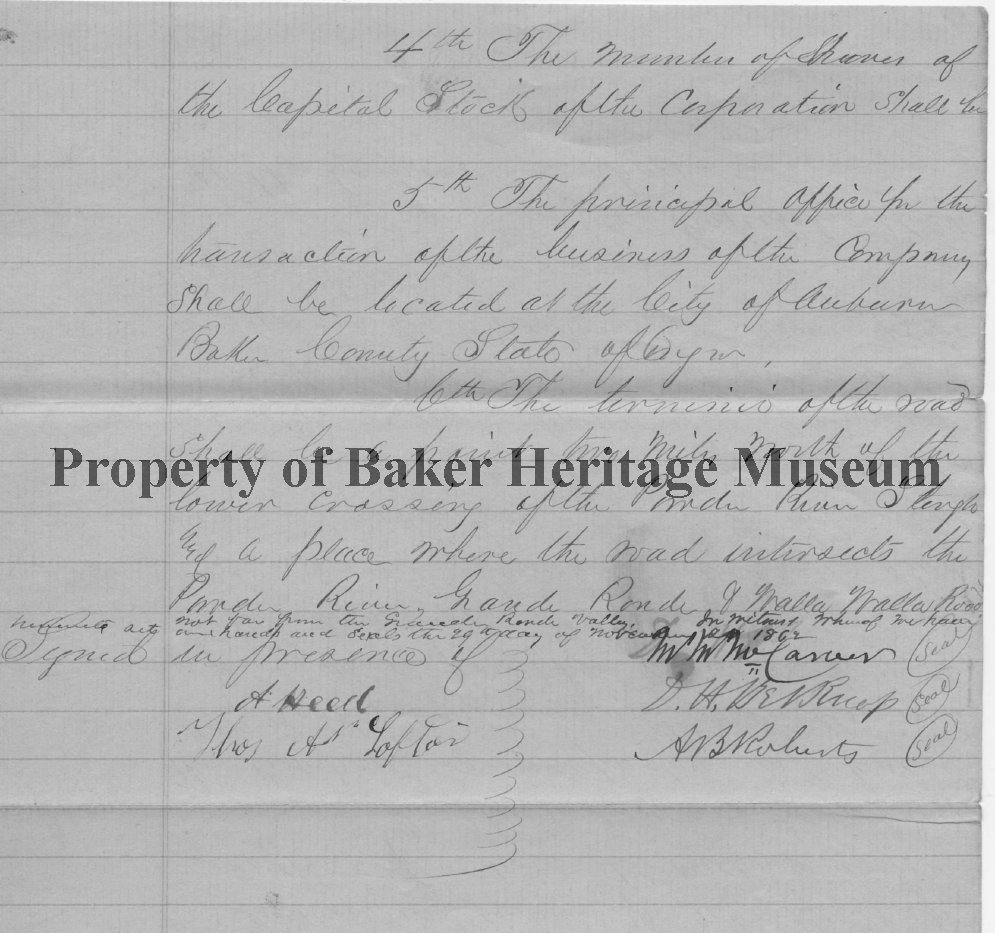 4th The number of Shares of
the Capital Stock of the Corporation shall be
5th The principal office for the
transaction of the business of the Company
shall be located at the City of Auburn
Baker County State of Orgn,
6th The termini of the road
shall be a point two miles north of the
Property of Baker Heritage Museum
lower crossing of the Powder River Slough
& a place where the road intersects the
Powder River, Grande Ronde & Walla Walla Road
not far from the Grande Ronde Valley. In witness whereof we have
our hands and seals the 29th day of November 1862
Signed in presence of
M M McCarver (Seal)
A Heed
D. H. Belknap (Seal)
Thos Loftar
A B Roberts (Seal)